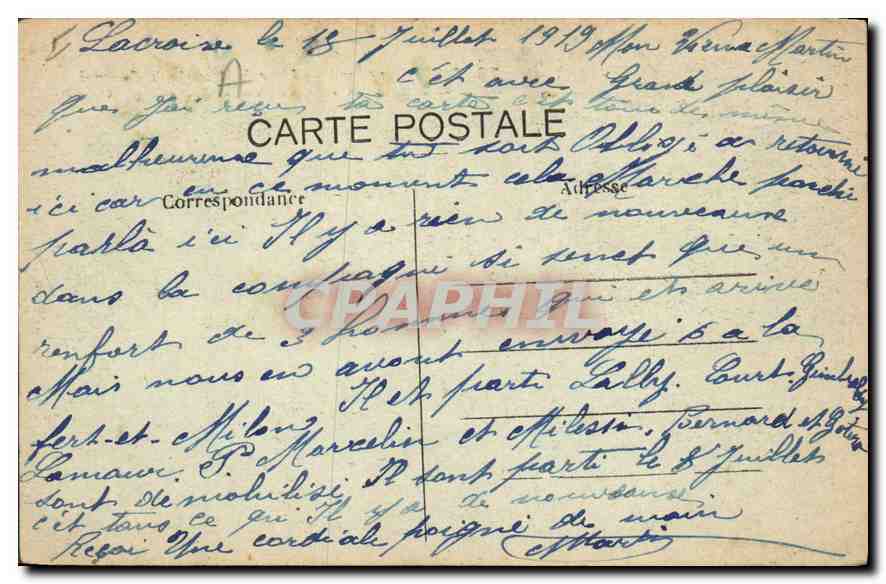 Lacroise le 18 Juillet 1919 Mon Vieux Martin
A
c'ét avec Grand plaisir
que J'ai reçus ta carte c'est tous de même
CARTE POSTALE
malheureuse que tu soit Obligé de retourné
ici car en ce moment cela Marche
Correspondance
Adresse
parla ici Il y a rien de nouveause
dans la compagni si senet que un
CPAPHIL
renfort de 3 hommes qui ets arivé
Mais nous en avont envoyé 6 a la
fert-et-Milon, Il et parti Lally, Court.
Lamaur P. Marcelin et Milessi, Bernard et
sont démobilisé Il sont parti le 8 Juillet
c'ét tous ce qu'Il y a de nouveause
Reçoi Une cordiale poigné de main
Martin